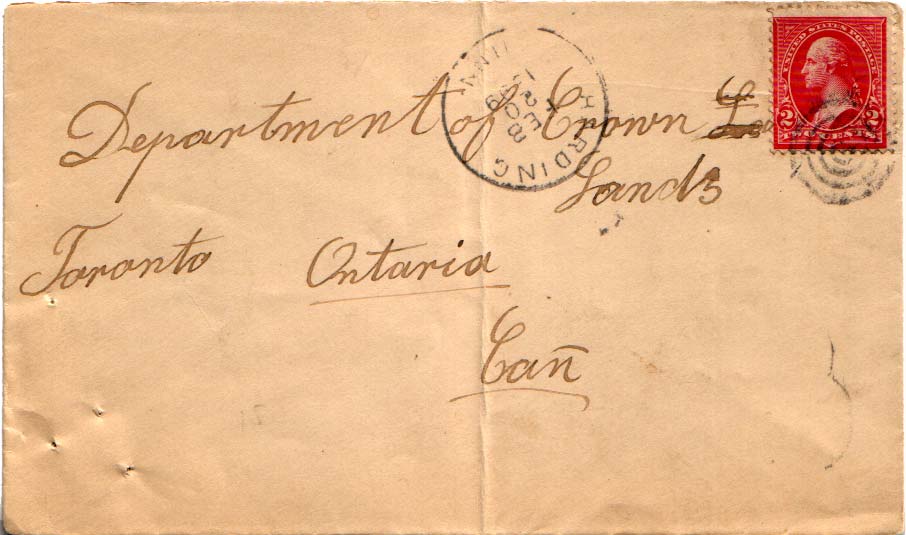 UNITED STATES POSTAGE
2 2
TWO CENTS
HARDING MINN
FEB
20
Department of Crown La
Lands
Toronto Ontario
Cañ